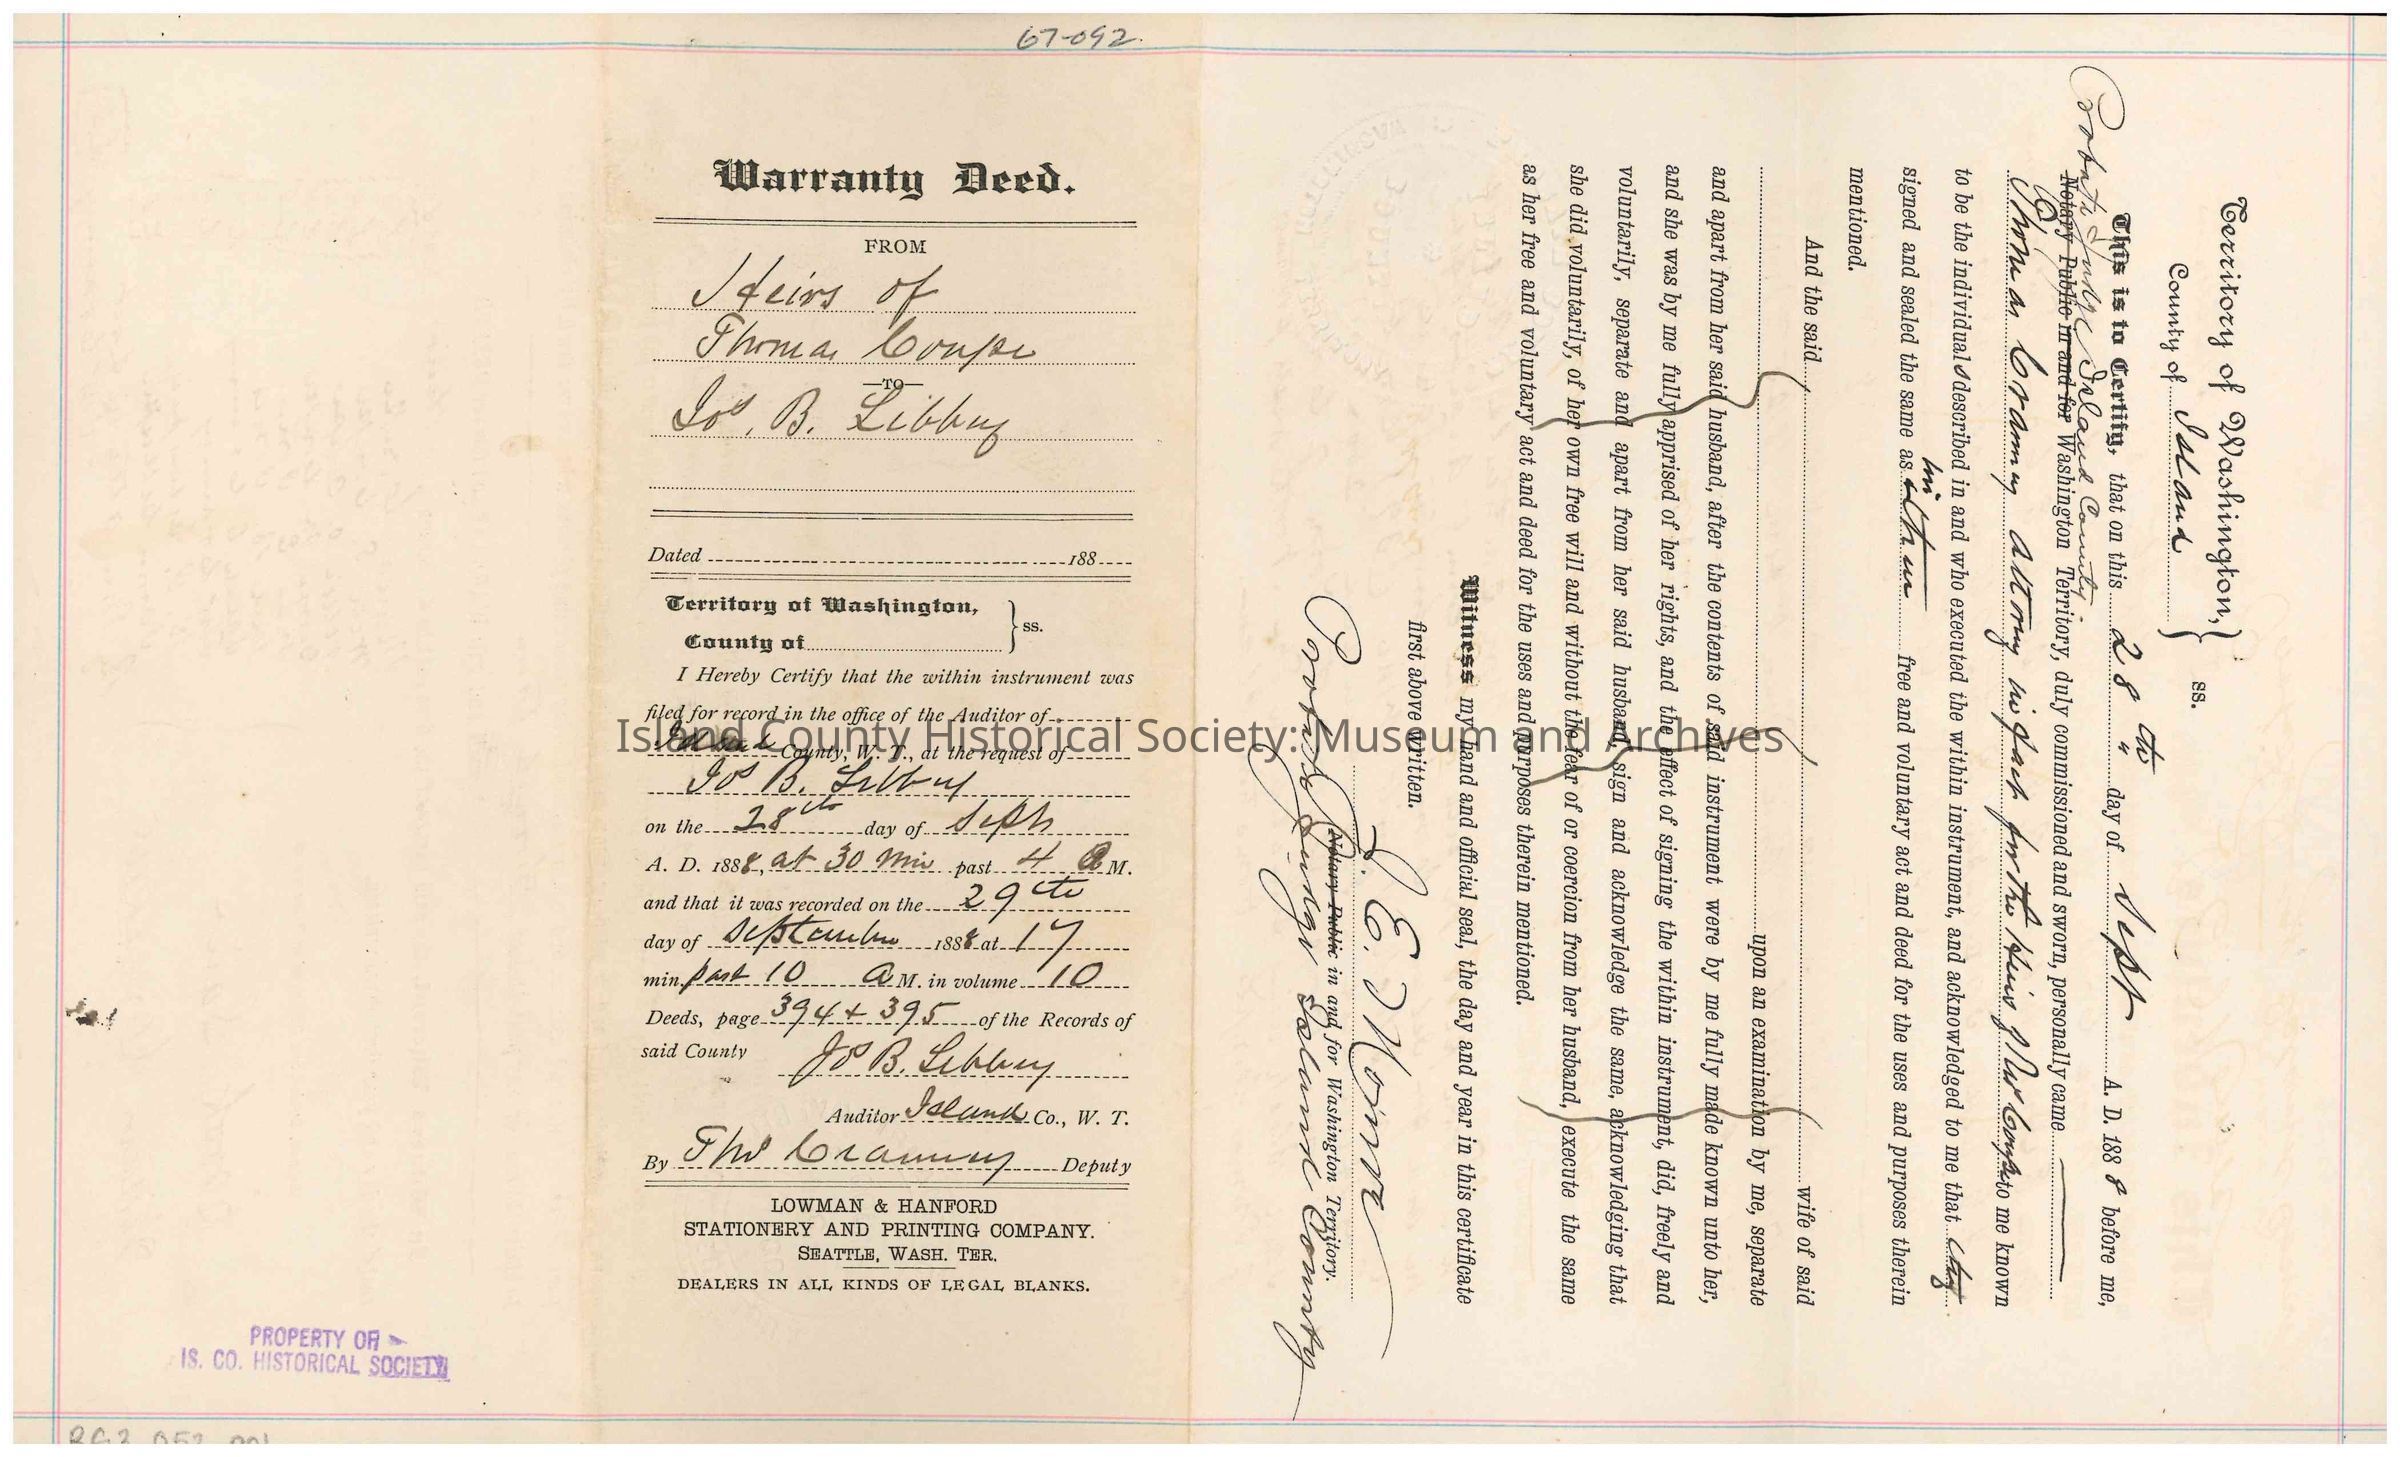 67-092.
Warranty Deed.
FROM
Heirs of
Thomas Coupe
—TO—
Jos. B. Libbey
Dated 188
Territory of Washington,
County of } ss.
I Hereby Certify that the within instrument was
filed for record in the office of the Auditor of
Island County, W. T., at the request of
Jos B. Libbey
on the 28th day of Sept
A. D. 1888, at 30 min past 4 P M.
and that it was recorded on the 29th
day of September 1888 at 17
min. past 10 A M. in volume 10
Deeds, page 394 + 395 of the Records of
said County
Jos B. Libbey
Auditor Island Co., W. T.
By Thos Cranney Deputy
LOWMAN & HANFORD
STATIONERY AND PRINTING COMPANY.
SEATTLE, WASH. TER.
DEALERS IN ALL KINDS OF LEGAL BLANKS.
PROPERTY OF
IS. CO. HISTORICAL SOCIETY
Island County Historical Society: Museum and Archives
Territory of Washington,
County of Island } ss.
This is to Certify, that on this 28th day of Sept A. D. 1888 before me,
Probate Judge Island County
Notary Public in and for Washington Territory, duly commissioned and sworn, personally came
Thomas Cranney attorney in fact for the Heirs of Thos Coupe to me known
to be the individuals described in and who executed the within instrument, and acknowledged to me that they
his
signed and sealed the same as their free and voluntary act and deed for the uses and purposes therein
mentioned.
And the said wife of said
upon an examination by me, separate
and apart from her said husband, after the contents of said instrument were by me fully made known unto her,
and she was by me fully apprised of her rights, and the effect of signing the within instrument, did, freely and
voluntarily, separate and apart from her said husband, sign and acknowledge the same, acknowledging that
she did voluntarily, of her own free will and without the fear of or coercion from her husband, execute the same
as her free and voluntary act and deed for the uses and purposes therein mentioned.
Witness my hand and official seal, the day and year in this certificate
first above written.
Notary Public in and for Washington Territory.
Probate Judge Island County